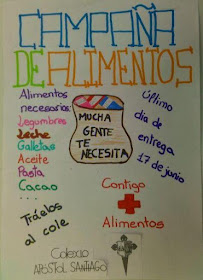 CAMPAÑA
DE ALIMENTOS
Alimentos
necesarios:
Legumbres
Leche
Galletas
Aceite
Pasta
Cacao
...
Tráelos
al cole
MUCHA
GENTE
TE
NECESITA
Último
día de
entrega
17 de junio
Contigo
+
Alimentos
Colexio
APOSTOL SANTIAGO